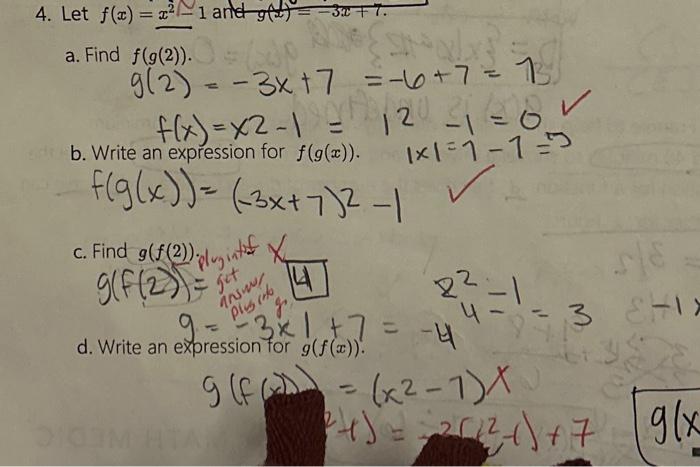 4. Let f(x) = x² - 1 and g(x) = -3x + 7.
a. Find f(g(2)).
g(2) = -3x +7 = -6+7 = 1
f(x) = x2 -1 = 12 -1 = 0 ✓
b. Write an expression for f(g(x)).
1x1=1-1=
f(g(x)) = (-3x+7)2 -1 ✓
c. Find g(f(2)). plug into f X
g(f(2)) = get answer plug into g. 4
2² -1
4 -1 = 3
g = -3x1 +7 = -4
d. Write an expression for g(f(x)).
g(f(x)) = (x2-1) X
+7
g(x